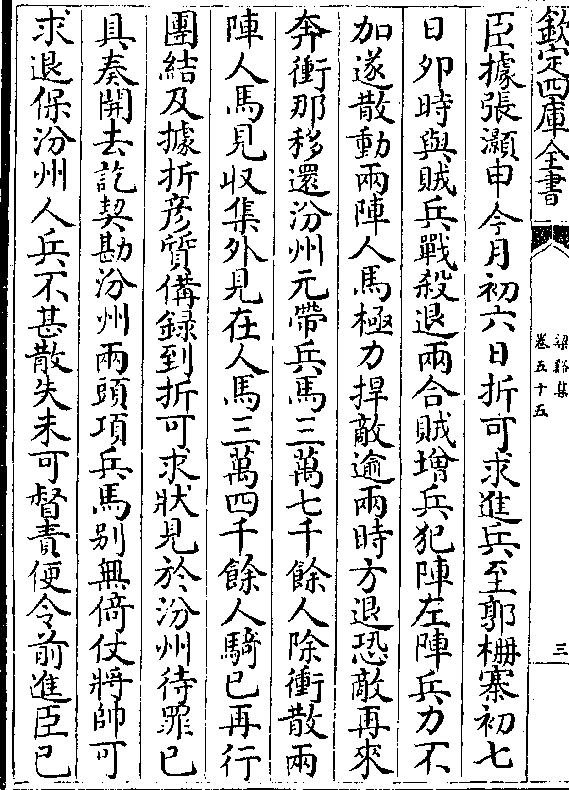 欽定四庫全書
梁谿集
卷五十五
三
臣據張灝申今月初六日折可求進兵至郭柵寨初七
日夘時與賊兵戰殺退兩合賊增兵犯陣左陣兵力不
加遂散動兩陣人馬極力捍敵逾兩時方退恐敵再來
奔衝那移還汾州元帶兵馬三萬七千餘人除衝散兩
陣人馬見收集外見在人馬三萬四千餘人騎已再行
團結及據折彦質備録到折可求狀見於汾州待罪已
具奏開去訖契勘汾州兩頭項兵馬别無倚仗將帥可
求退保汾州人兵不甚散失未可督責便令前進臣已